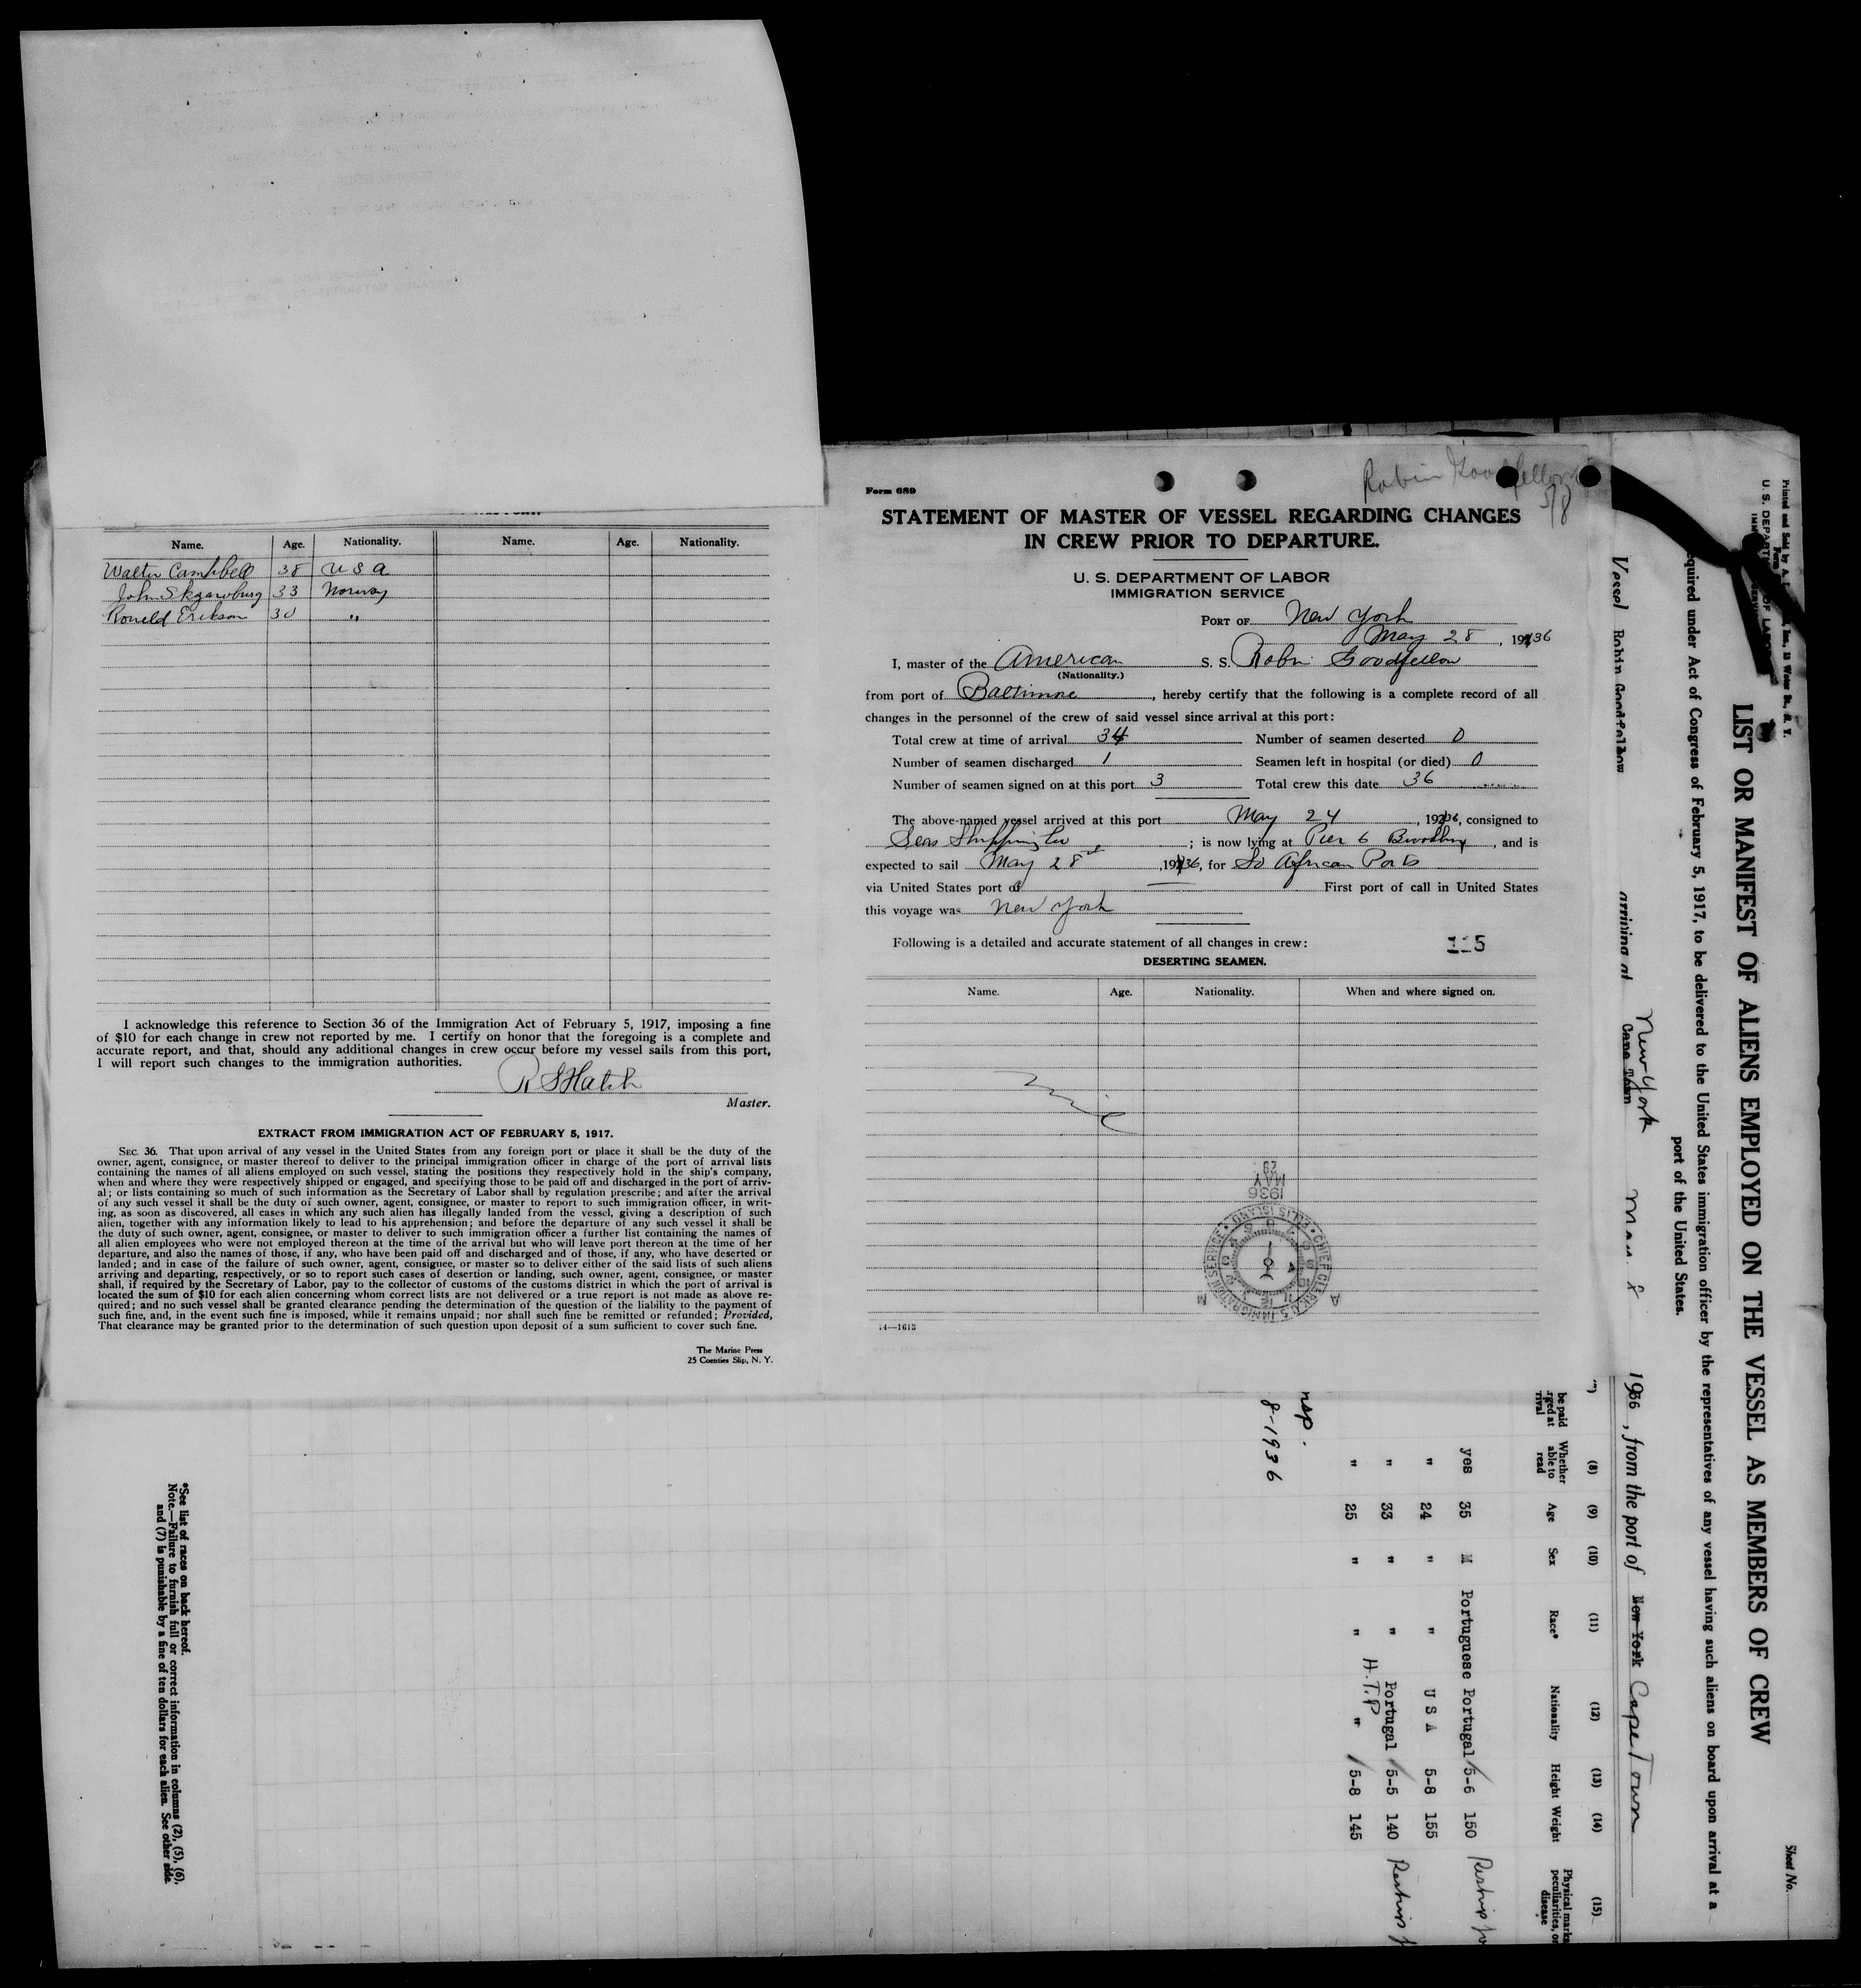 Name. Age. Nationality. Name. Age. Nationality.
Walter Campbell 38 U S A
John 33 Norway
Ronald Erikson 30 "
I acknowledge this reference to Section 36 of the Immigration Act of February 5, 1917, imposing a fine
of $10 for each change in crew not reported by me. I certify on honor that the foregoing is a complete and
accurate report, and that, should any additional changes in crew occur before my vessel sails from this port,
I will report such changes to the immigration authorities.
R S Hatch
Master.
EXTRACT FROM IMMIGRATION ACT OF FEBRUARY 5, 1917.
SEC. 36. That upon arrival of any vessel in the United States from any foreign port or place it shall be the duty of the
owner, agent, consignee, or master thereof to deliver to the principal immigration officer in charge of the port of arrival lists
containing the names of all aliens employed on such vessel, stating the positions they respectively hold in the ship's company,
when and where they were respectively shipped or engaged, and specifying those to be paid off and discharged in the port of arriv-
al; or lists containing so much of such information as the Secretary of Labor shall by regulation prescribe; and after the arrival
of any such vessel it shall be the duty of such owner, agent, consignee, or master to report to such immigration officer, in writ-
ing, as soon as discovered, all cases in which any such alien has illegally landed from the vessel, giving a description of such
alien, together with any information likely to lead to his apprehension; and before the departure of any such vessel it shall be
the duty of such owner, agent, consignee, or master to deliver to such immigration officer a further list containing the names of
all alien employees who were not employed thereon at the time of the arrival but who will leave port thereon at the time of her
departure, and also the names of those, if any, who have been paid off and discharged and of those, if any, who have deserted or
landed; and in case of the failure of such owner, agent, consignee, or master so to deliver either of the said lists of such aliens
arriving and departing, respectively, or so to report such cases of desertion or landing, such owner, agent, consignee, or master
shall, if required by the Secretary of Labor, pay to the collector of customs of the customs district in which the port of arrival is
located the sum of $10 for each alien concerning whom correct lists are not delivered or a true report is not made as above re-
quired; and no such vessel shall be granted clearance pending the determination of the question of the liability to the payment of
such fine, and, in the event such fine is imposed, while it remains unpaid; nor shall such fine be remitted or refunded; Provided,
That clearance may be granted prior to the determination of such question upon deposit of a sum sufficient to cover such fine.
The Marine Press
25 Coenties Slip, N. Y.
Robin Goodfellow
5/8
Form 689
STATEMENT OF MASTER OF VESSEL REGARDING CHANGES
IN CREW PRIOR TO DEPARTURE.
U. S. DEPARTMENT OF LABOR
IMMIGRATION SERVICE
PORT OF New York
May 28, 1936
I, master of the American S. S. Robin Goodfellow
(Nationality.)
from port of Baltimore, hereby certify that the following is a complete record of all
changes in the personnel of the crew of said vessel since arrival at this port:
Total crew at time of arrival 34 Number of seamen deserted 0
Number of seamen discharged 1 Seamen left in hospital (or died) 0
Number of seamen signed on at this port 3 Total crew this date 36
The above-named vessel arrived at this port May 24, 1936, consigned to
Seas Shipping Co; is now lying at Pier 6 Brooklyn, and is
expected to sail May 28, 1936, for So African Ports
via United States port of First port of call in United States
this voyage was New York
Following is a detailed and accurate statement of all changes in crew: 115
DESERTING SEAMEN.
Name. Age. Nationality. When and where signed on.
1936
MAY
29
CHIEF CLERK, U.S. IMMIGRATION SERVICE • ELLIS ISLAND
A M
14—1613
Sheet No.
Printed and Sold by A. Inc., 13 Water St., N. Y.
Form
U. S. DEPARTMENT OF LABOR
IMMIGRATION SERVICE
LIST OR MANIFEST OF ALIENS EMPLOYED ON THE VESSEL AS MEMBERS OF CREW
quired under Act of Congress of February 5, 1917, to be delivered to the United States immigration officer by the representatives of any vessel having such aliens on board upon arrival at a
port of the United States.
Vessel Robin Goodfellow arriving at Cape Town New York May 8 1936, from the port of New York Cape Town
(8) (9) (10) (11) (12) (13) (14) (15)
be paid
rged at
rival
Whether
able to
read
Age Sex Race* Nationality Height Weight
Physical marks,
peculiarities, or
disease
yes 35 M Portuguese Portugal 5-6 150
" 24 " " U S A 5-8 155
" 33 " " Portugal 5-5 140
H.T.P
" 25 " " " 5-8 145
nsp.
8-1936
*See list of races on back hereof.
Note.—Failure to furnish full or correct information in columns (2), (5), (6),
and (7) is punishable by a fine of ten dollars for each alien. See other side.